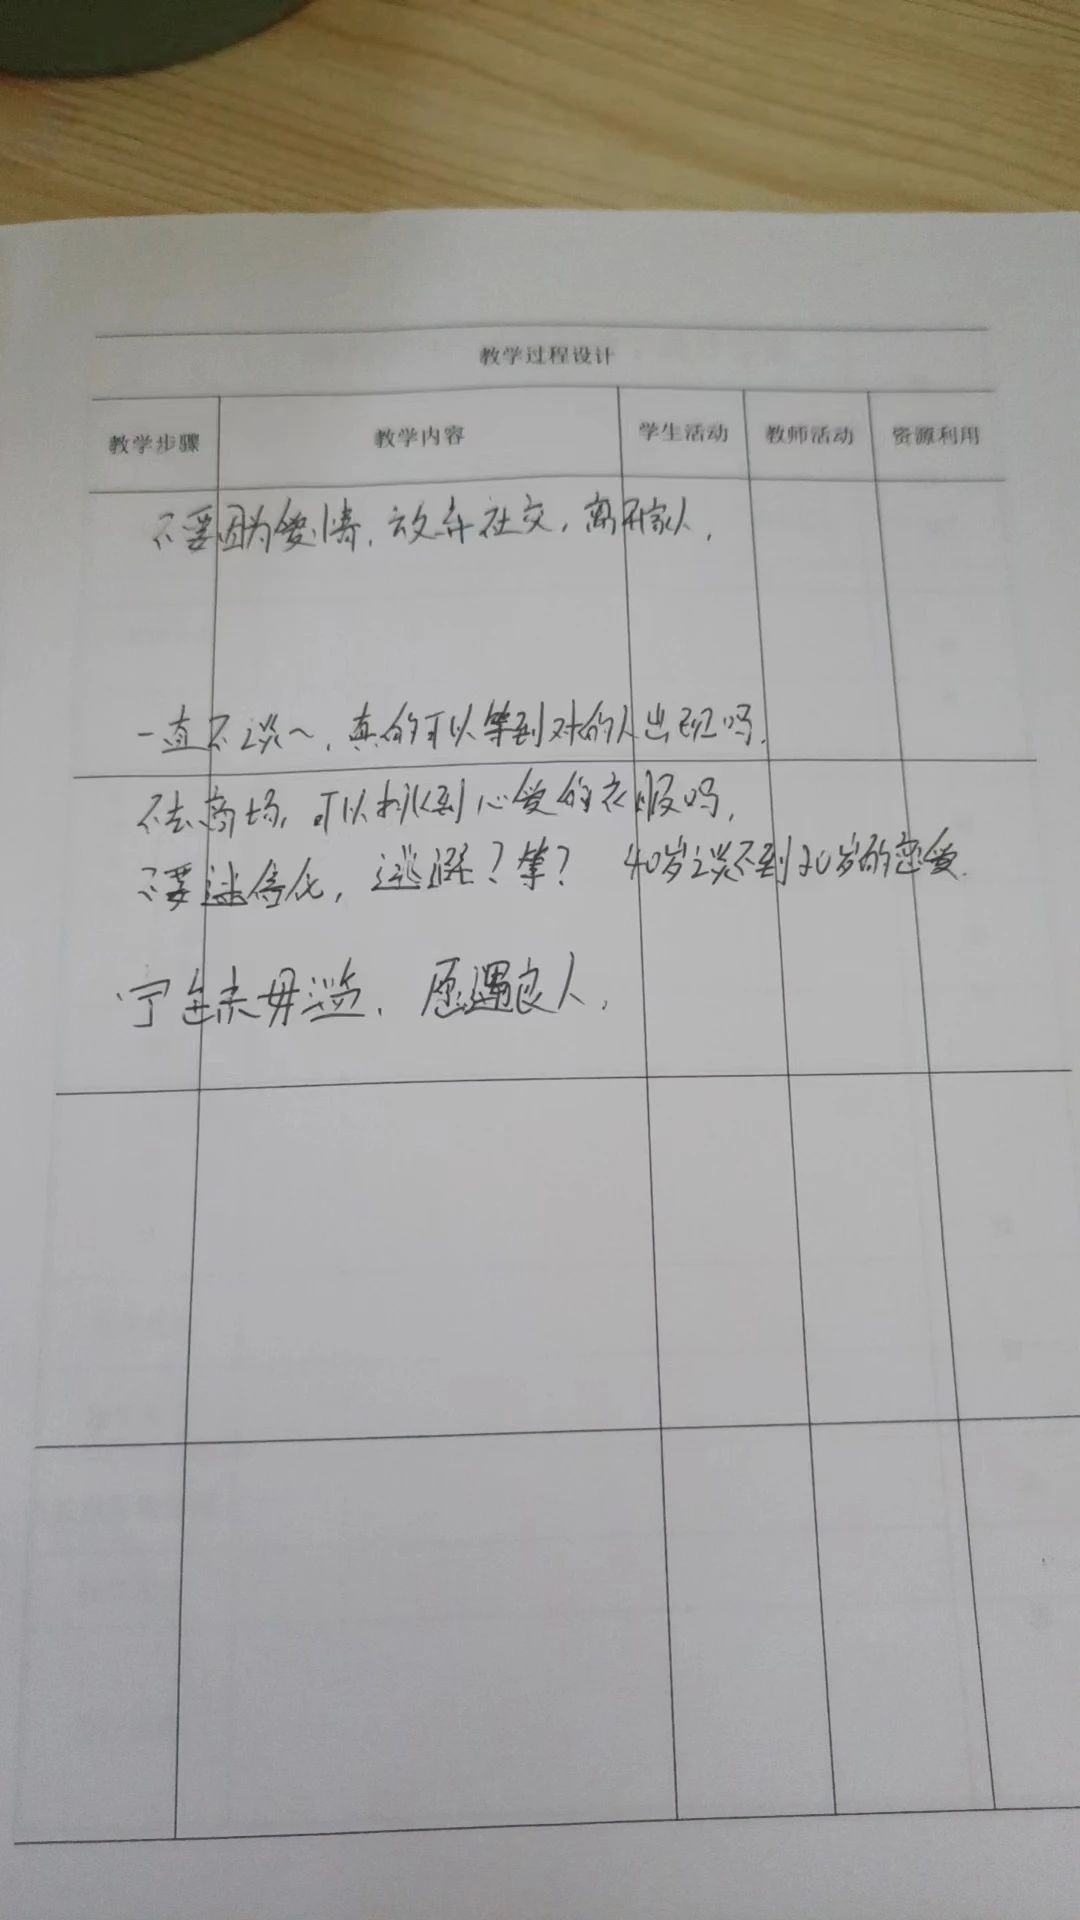 教学过程设计
教学步骤 教学内容 学生活动 教师活动 资源利用
不要因为爱情，放弃社交，离开家人，
一直不谈~，真的可以等到对的人出现吗，
不去商场，可以挑到心爱的衣服吗，
不要迷信化，逃避？等？ 40岁谈不到20岁的恋爱.
宁缺毋滥，愿遇良人，